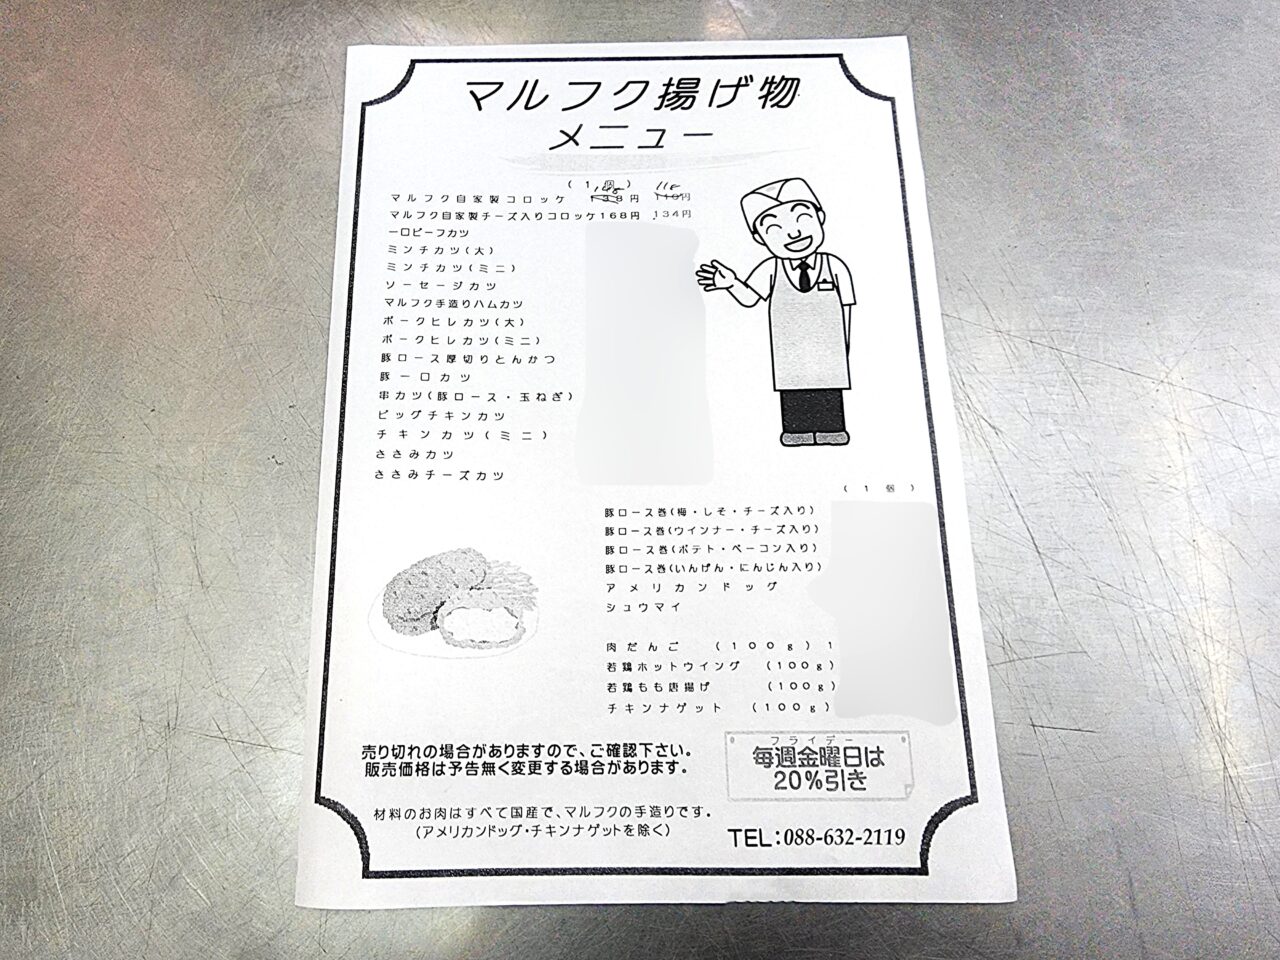 マルフク揚げ物
メニュー
(1個)
マルフク自家製コロッケ 148 138円 118 110円
マルフク自家製チーズ入りコロッケ168円 134円
一口ビーフカツ
ミンチカツ(大)
ミンチカツ(ミニ)
ソーセージカツ
マルフク手造りハムカツ
ポークヒレカツ(大)
ポークヒレカツ(ミニ)
豚ロース厚切りとんかつ
豚一口カツ
串カツ(豚ロース・玉ねぎ)
ビッグチキンカツ
チキンカツ(ミニ)
ささみカツ
ささみチーズカツ
(1個)
豚ロース巻(梅・しそ・チーズ入り)
豚ロース巻(ウインナー・チーズ入り)
豚ロース巻(ポテト・ベーコン入り)
豚ロース巻(いんげん・にんじん入り)
アメリカンドッグ
シュウマイ
肉だんご (100g) 1
若鶏ホットウイング (100g)
若鶏もも唐揚げ (100g)
チキンナゲット (100g)
売り切れの場合がありますので、ご確認下さい。
販売価格は予告無く変更する場合があります。
フライデー
毎週金曜日は
20%引き
材料のお肉はすべて国産で、マルフクの手造りです。
(アメリカンドッグ・チキンナゲットを除く)
TEL:088-632-2119